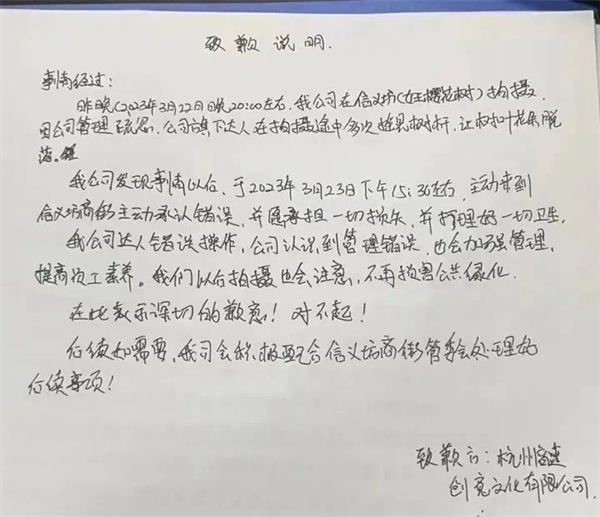 致歉说明.
事情经过:
昨晚(2023年3月22日晚20:00左右.我公司在信义坊(女王樱花树)拍摄.
因公司管理疏忽.公司旗下达人在拍摄途中多次摇晃树杆,让树叶花朵脱
落.
我公司发现事情以后,于2023年3月23日下午15:30左右,主动来到
信义坊商街主动承认错误,并愿承担一切损失,并打理好一切卫生,
我公司达人错误操作,公司认识到管理错误.也会加强管理,
提高员工素养。我们以后拍摄也会注意,不再损害公共绿化.
在此表示深切的歉意!对不起!
后续如需要,我司会积极配合信义坊商街管委会处理好
后续事项!
致歉方:杭州
创亮文化有限公司.